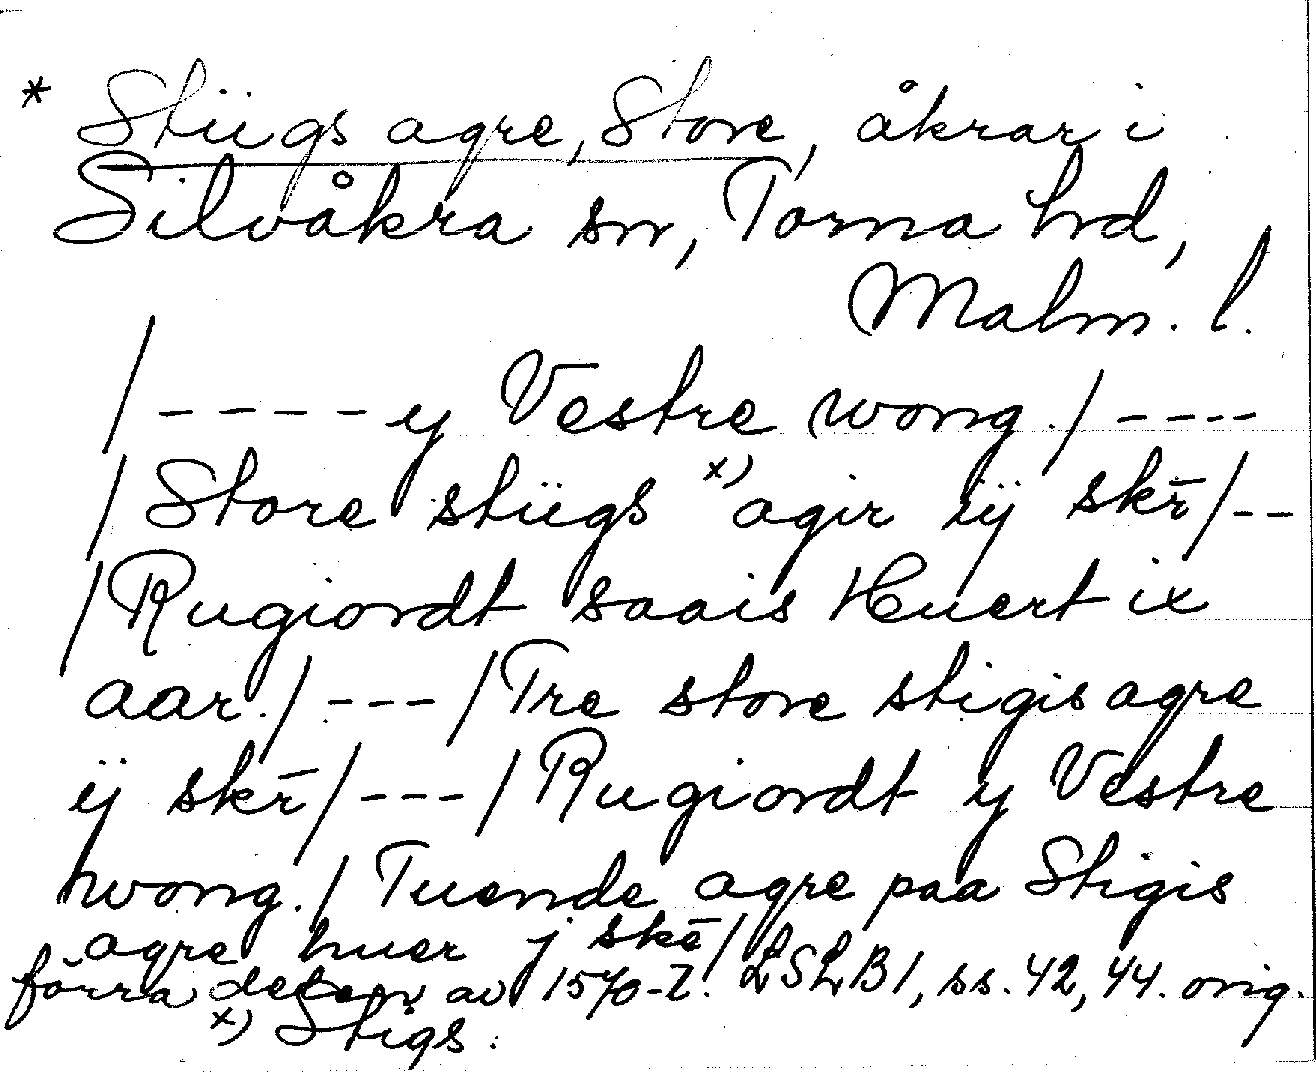 * Stiigs agre, Store, åkrar i
Silvåkra sn, Torna hrd,
Malm. l.
/---- y Vestre wong./----
/Store stiigs x) agir iij skr̄/--
/Rugiordt saais Huert ix
aar./---/Tre store stigis agre
ij skr̄/---/Rugiordt y Vestre
wong./Tuende agre paa Stigis
agre huer j skē/ LSLB1, ss. 42, 44. orig.
förra decenn av 1570-t.
x) Stigs.